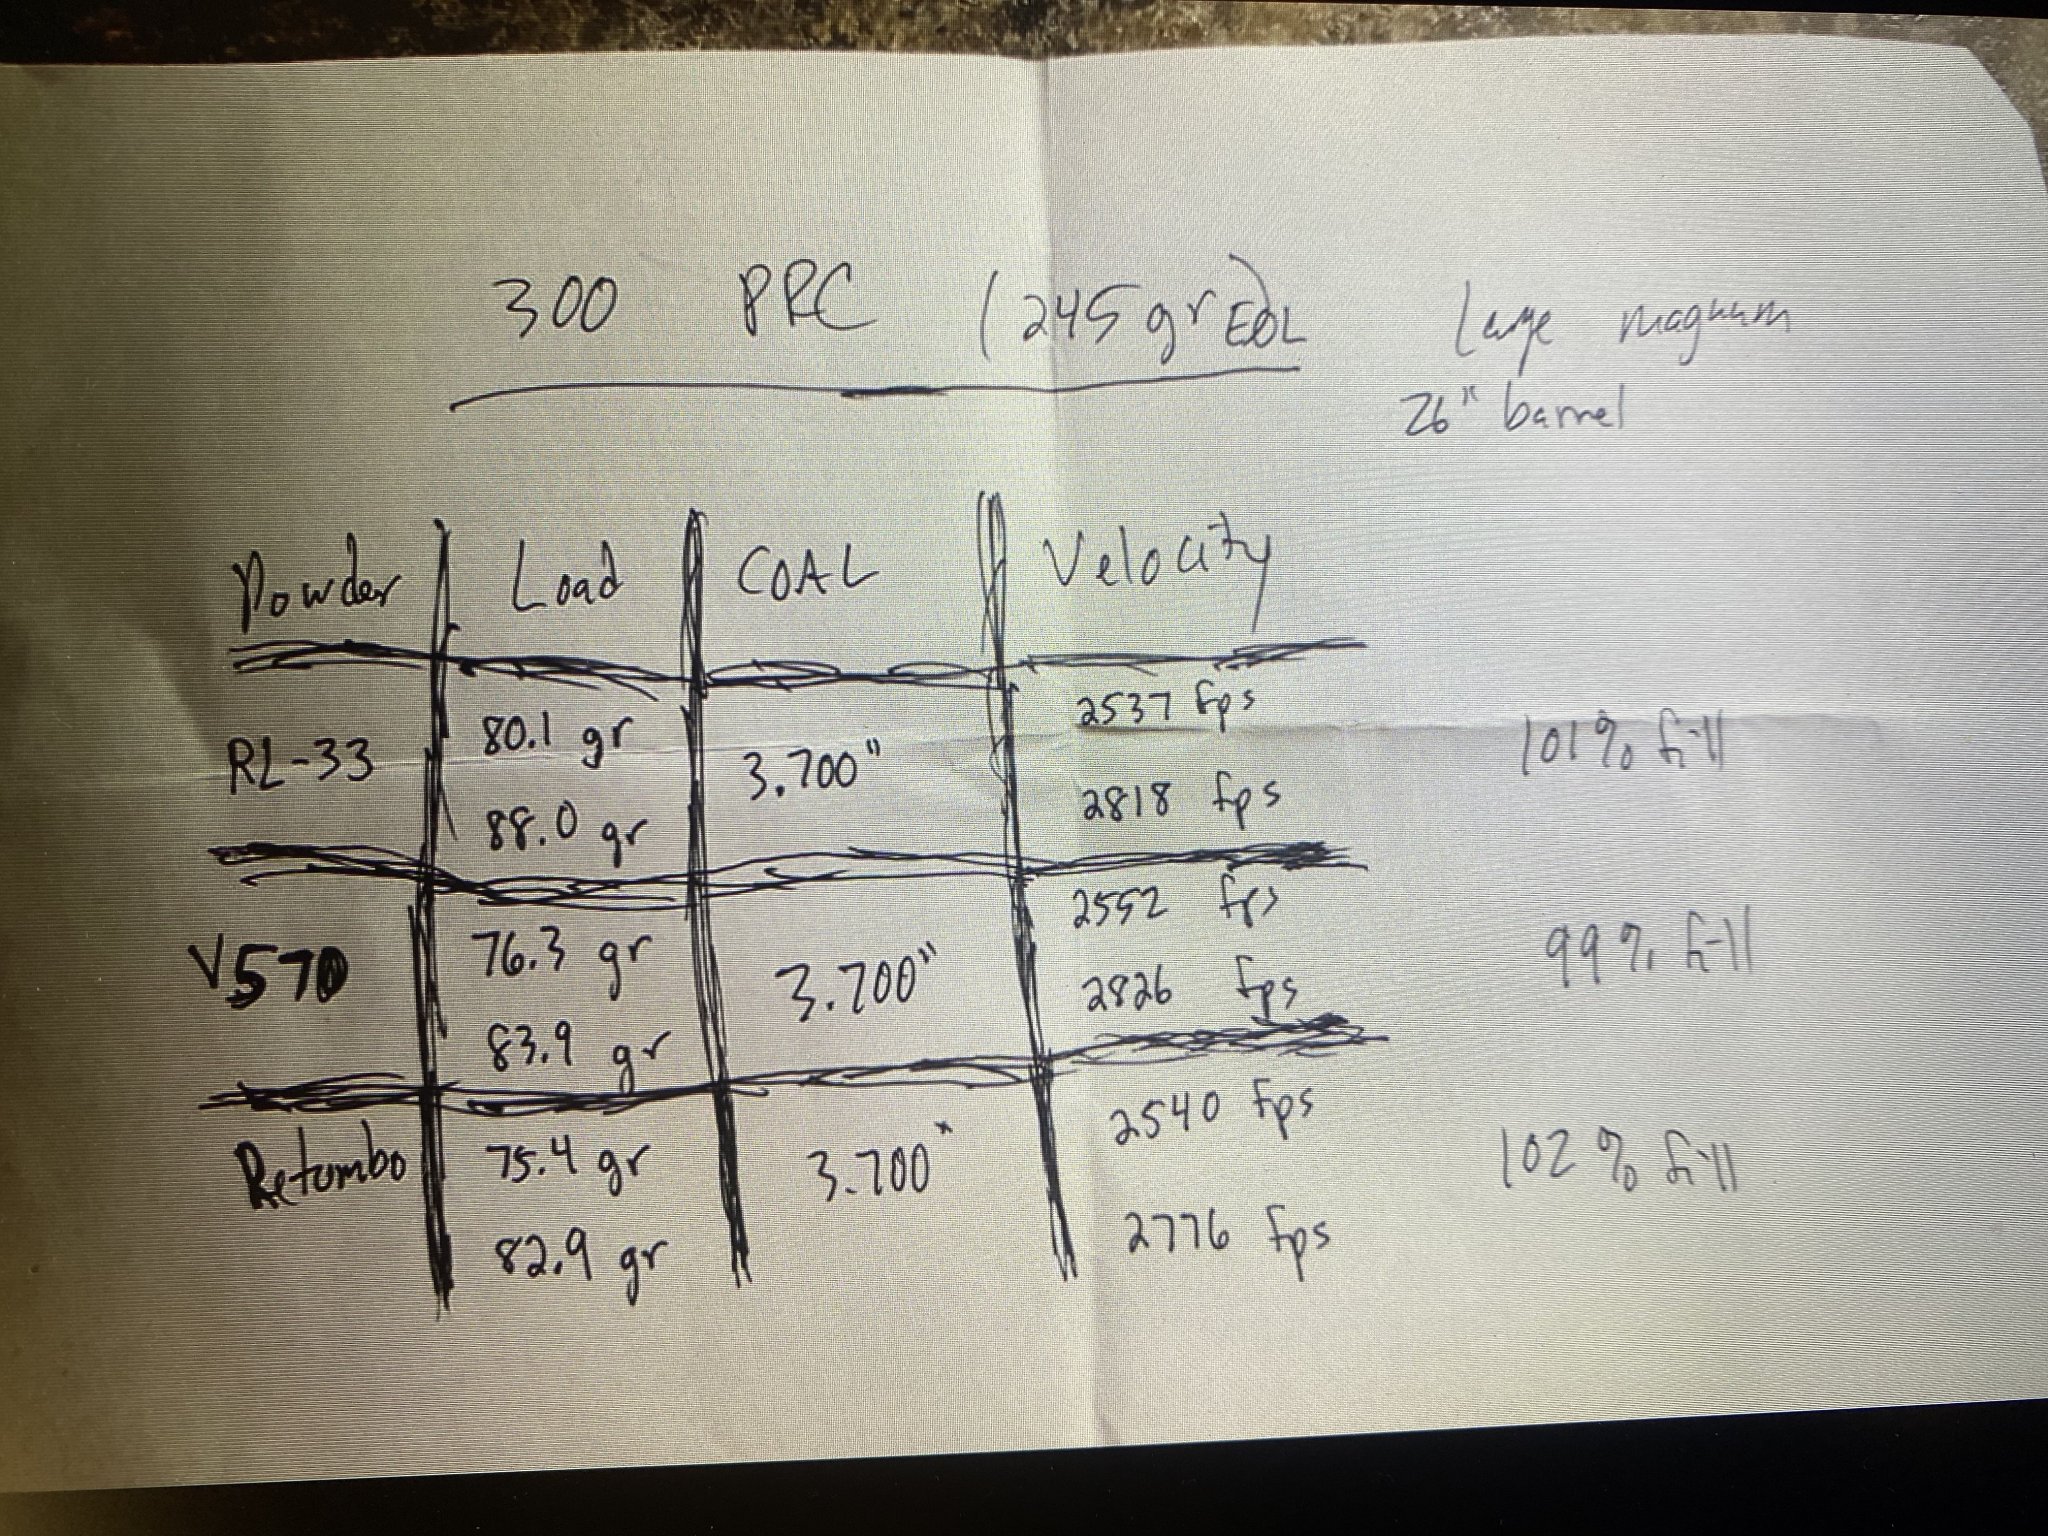 300 PRC (245 gr EOL)
large magnum
26" barrel
Powder Load COAL Velocity
RL-33 80.1 gr 3.700" 2537 fps 101% fill
88.0 gr 2818 fps
V570 76.3 gr 3.700" 2552 fps 99% fill
83.9 gr 2826 fps
Retumbo 75.4 gr 3.700" 2540 fps 102% fill
82.9 gr 2776 fps